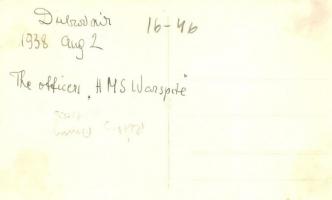 Dubrovnik 16-46
1938 Aug 2
The officers "HMS Warspite"